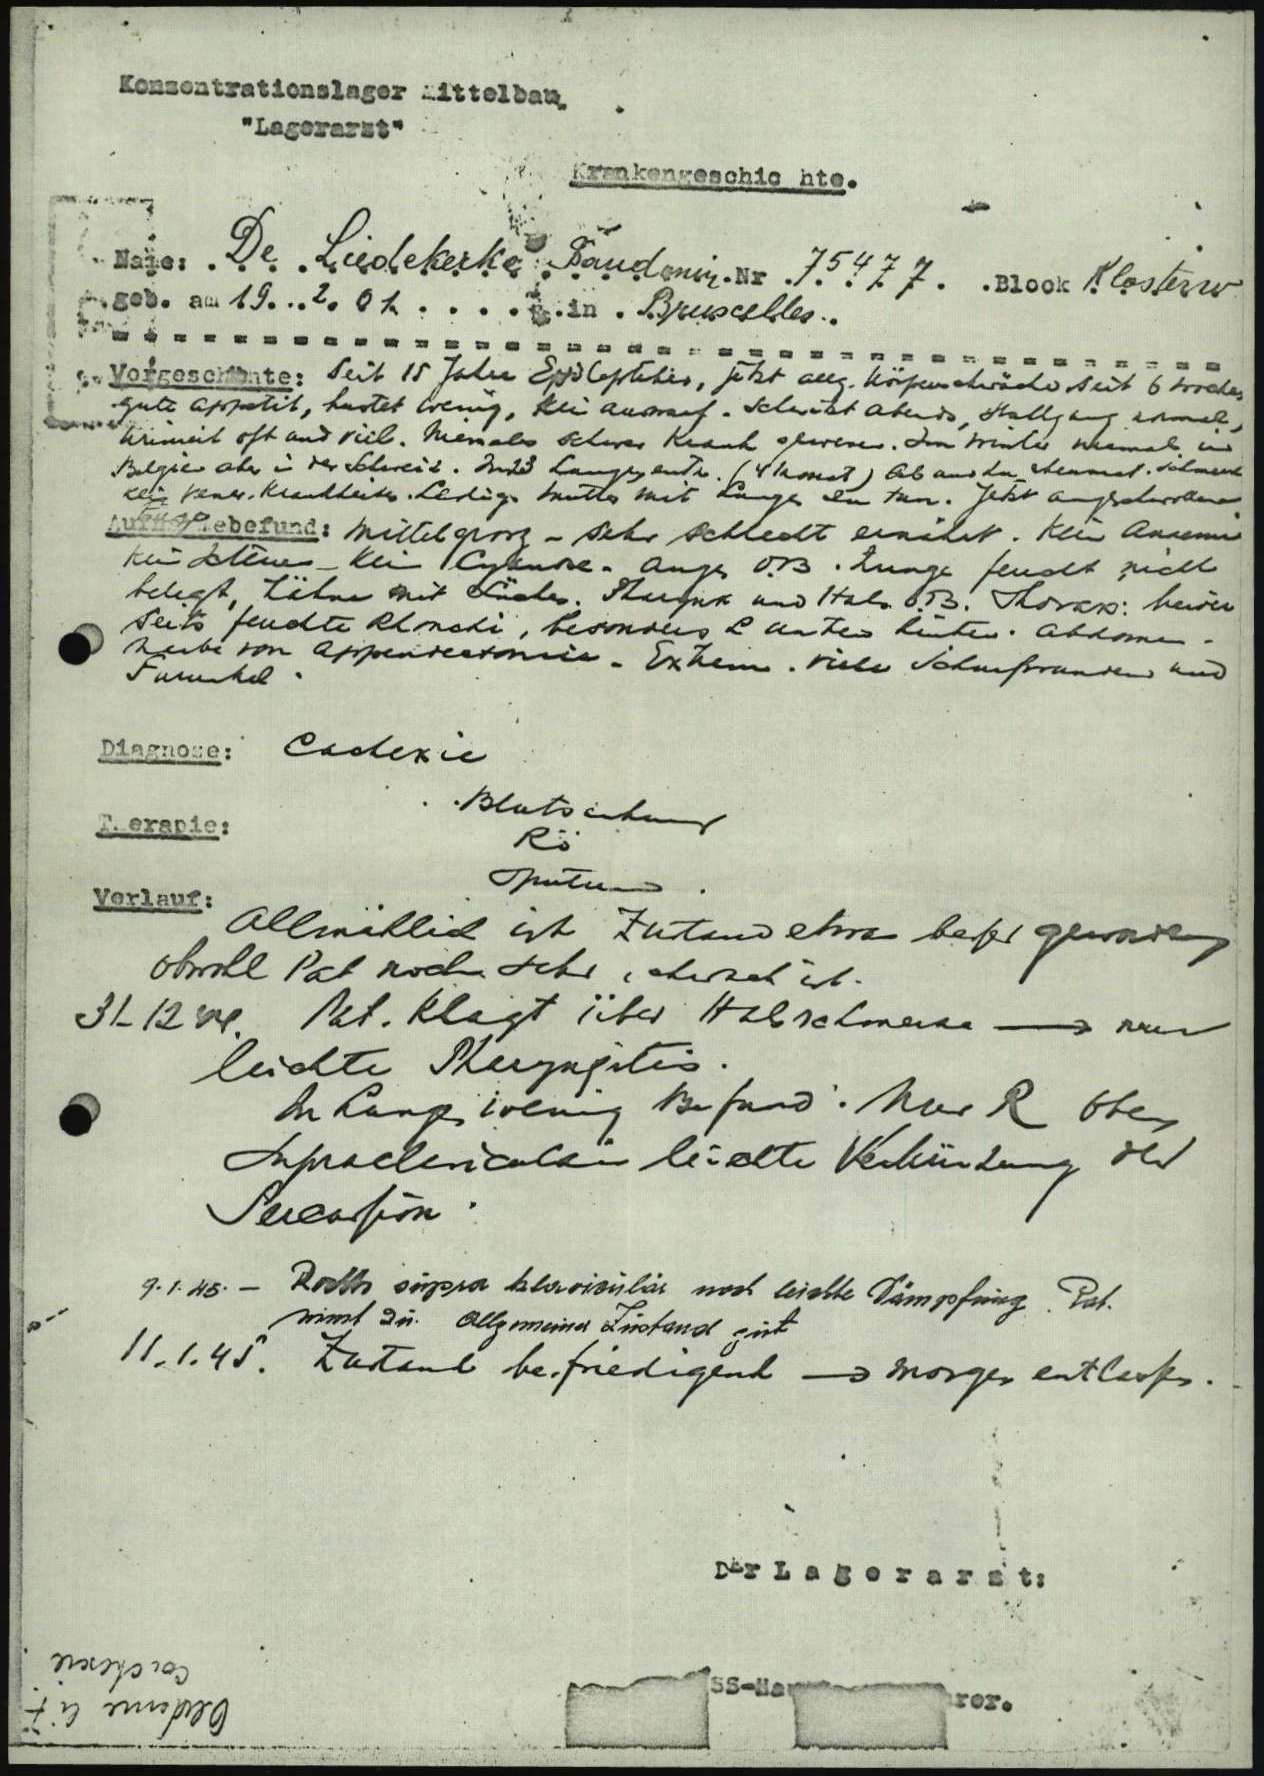 Konzentrationslager Mittelbau
"Lagerarzt"
Krankengeschic hte.
Name: De Liedekerke Baudouin Nr 75477 Block Kloster
geb. am 19. 2. 01 in Bruxelles
Vorgeschichte: Seit 15 Jahre Epileptiker, jetzt allg. Körperschwäche seit 6 Wochen
gute appetit, hustet wenig, kein auswurf. schwitzt abends, Stuhlgang normal,
uriniert oft und viel. Niemals schwer Krank gewesen. Im Winter niemals in
Belgien aber in der Schweiz. In 23 Lungenentz. (4 Monat)
kein vener. Krankheiten. Ledig. Mutter mit Lungen zu tun. Jetzt
Aufnahmebefund: Mittelgross - sehr schlecht ernährt. Kein Anaemie
kein Icterus - Kein Cyanose. Augen O.B. Zunge feucht nicht
belegt, Zähne mit Lücken. Pharynx und Hals O.B. Thorax: beider
seits feuchte Rhonchi, besonders L unten hinten. Abdomen -
Narbe von Appendectomie - Extrem. viele und
Furunkel.
Diagnose: Cachexie
Therapie: Blutsenkung
Rö
Sputum.
Verlauf:
Allmählich ist Zustand etwas besser geworden
obwohl Pat noch sehr schwach ist.
31-12 44. Pat. klagt über Halsschmerzen → nur
leichte Pharyngitis.
In Lungen wenig Befund. Nur R oben
supraclavicular leichte Verkürzung der
Percussion.
9.1.45. - Rechts supra klavikulär noch leichte Dämpfung. Pat.
nimmt zu. Allgemeiner Zustand gut
11.1.45. Zustand befriedigend → morgen entlassen.
Der Lagerarzt:
SS-Ha rer.
cachexie